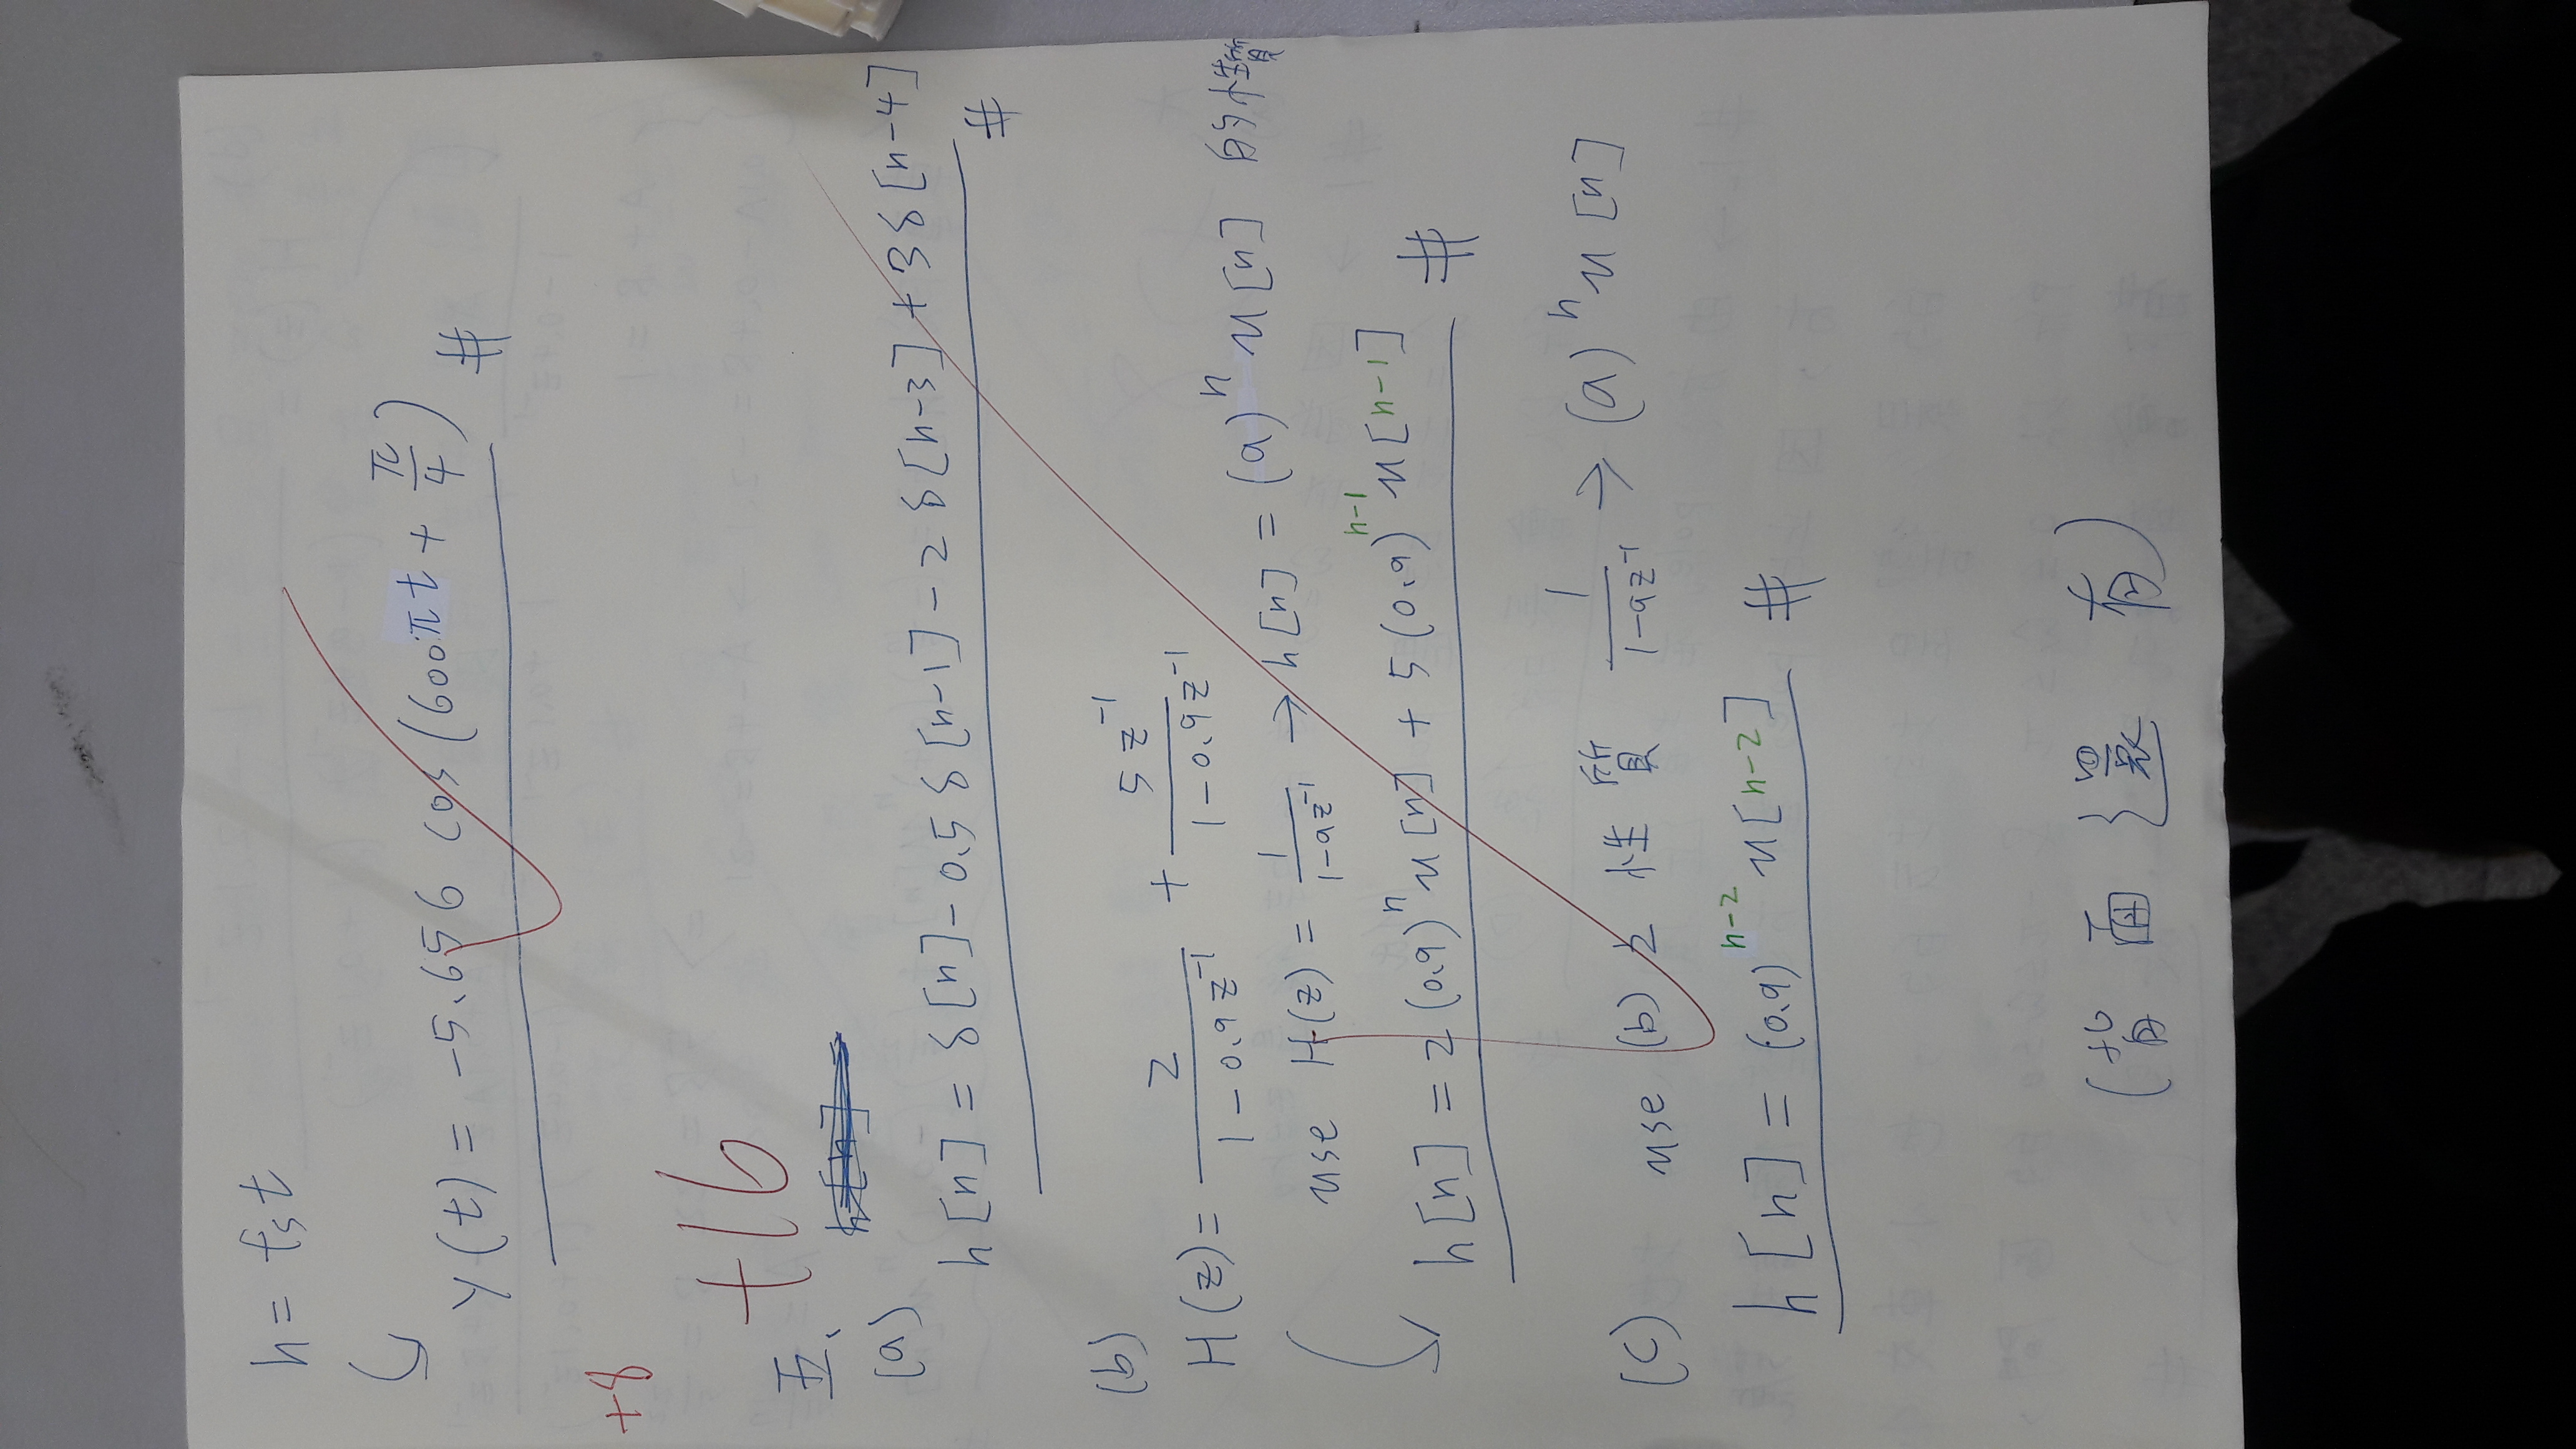 n = fst
y(t) = -5.656 cos(600πt + π/4) #
+8
+16
五、
h[n] =
(a)
h[n] = δ[n] - 0.5 δ[n-1] - 2 δ[n-3] + 3 δ[n-4]
#
(b)
H(z) = 2/(1 - 0.9z^-1) + 5z^-1/(1 - 0.9z^-1)
use H(z) = 1/(1-az^-1) → h[n] = (a)^n u[n] 的性質
h[n] = 2(0.9)^n u[n] + 5(0.9)^n-1 u[n-1] #
(c) use (b) 之性質 1/(1-az^-1) → (a)^n u[n]
h[n] = (0.9)^n-2 u[n-2] #
(背面還有)